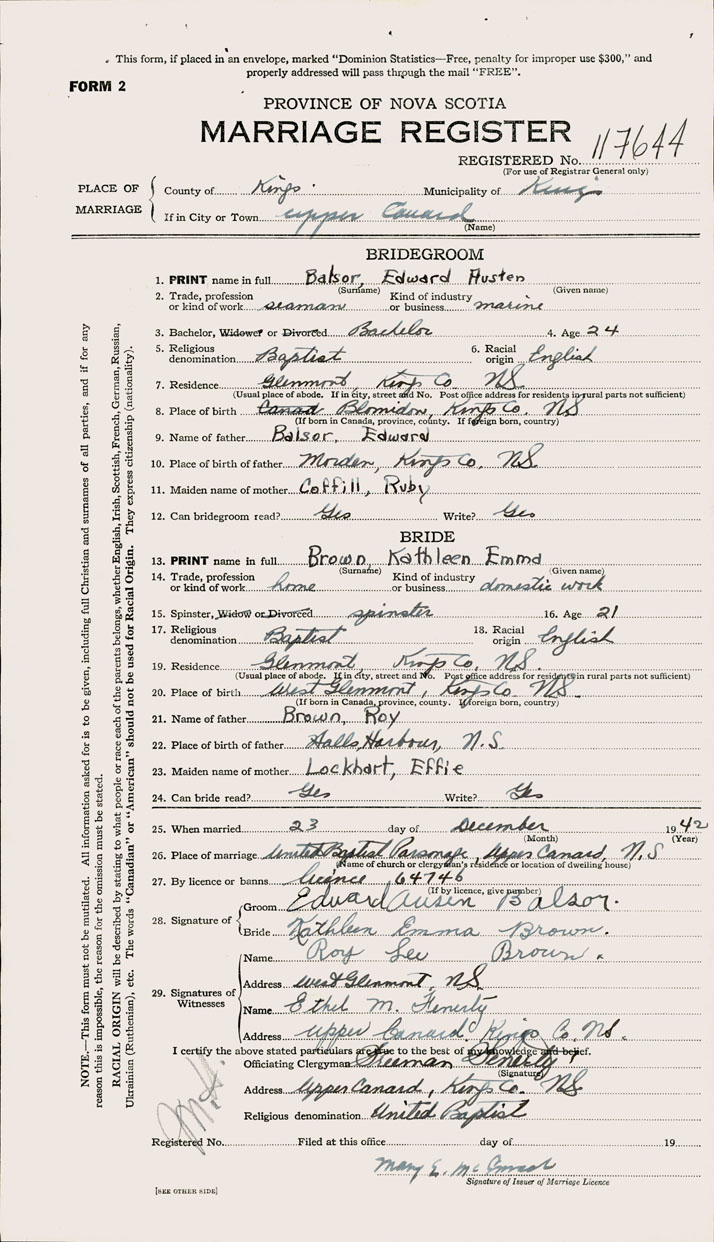 This form, if placed in an envelope, marked "Dominion Statistics—Free, penalty for improper use $300," and
properly addressed will pass through the mail "FREE".
FORM 2
PROVINCE OF NOVA SCOTIA
MARRIAGE REGISTER
REGISTERED No. 117644
(For use of Registrar General only)
PLACE OF MARRIAGE
County of Kings Municipality of Kings
If in City or Town Upper Canard
(Name)
BRIDEGROOM
1. PRINT name in full Balsor, Edward Austen
(Surname) (Given name)
2. Trade, profession or kind of work seaman Kind of industry or business marine
3. Bachelor, Widower or Divorced Bachelor 4. Age 24
5. Religious denomination Baptist 6. Racial origin English
7. Residence Glenmont, Kings Co. NS
(Usual place of abode. If in city, street and No. Post office address for residents in rural parts not sufficient)
8. Place of birth Canad Blomidon, Kings Co. NS
(If born in Canada, province, county. If foreign born, country)
9. Name of father Balsor, Edward
10. Place of birth of father Morden, Kings Co. NS.
11. Maiden name of mother Coffill, Ruby
12. Can bridegroom read? Yes Write? Yes
BRIDE
13. PRINT name in full Brown, Kathleen Emma
(Surname) (Given name)
14. Trade, profession or kind of work home Kind of industry or business domestic work
15. Spinster, Widow or Divorced spinster 16. Age 21
17. Religious denomination Baptist 18. Racial origin English
19. Residence Glenmont, Kings Co. NS.
(Usual place of abode. If in city, street and No. Post office address for residents in rural parts not sufficient)
20. Place of birth West Glenmont, Kings Co. NS.
(If born in Canada, province, county. If foreign born, country)
21. Name of father Brown, Roy
22. Place of birth of father Halls Harbour, N.S.
23. Maiden name of mother Lockhart, Effie
24. Can bride read? Yes Write? Yes
25. When married 23 day of December 1942
(Month) (Year)
26. Place of marriage United Baptist Parsonage, Upper Canard, N.S
(Name of church or clergyman's residence or location of dwelling house)
27. By licence or banns licence, 64746
(If by licence, give number)
28. Signature of
Groom Edward Austen Balsor.
Bride Kathleen Emma Brown.
29. Signatures of Witnesses
Name Roy Lee Brown.
Address West Glenmont, NS
Name Ethel M. Fenerty
Address Upper Canard, Kings Co. NS.
I certify the above stated particulars are true to the best of my knowledge and belief.
Officiating Clergyman Freeman Fenerty
(Signature)
Address Upper Canard, Kings Co. NS
Religious denomination United Baptist
Registered No. Filed at this office day of 19
Mary E.
Signature of Issuer of Marriage Licence
[SEE OTHER SIDE]
NOTE.—This form must not be mutilated. All information asked for is to be given, including full Christian and surnames of all parties, and if for any
reason this is impossible, the reason for the omission must be stated.
RACIAL ORIGIN will be described by stating to what people or race each of the parents belongs, whether English, Irish, Scottish, French, German, Russian,
Ukrainian (Ruthenian), etc. The words "Canadian" or "American" should not be used for Racial Origin. They express citizenship (nationality).